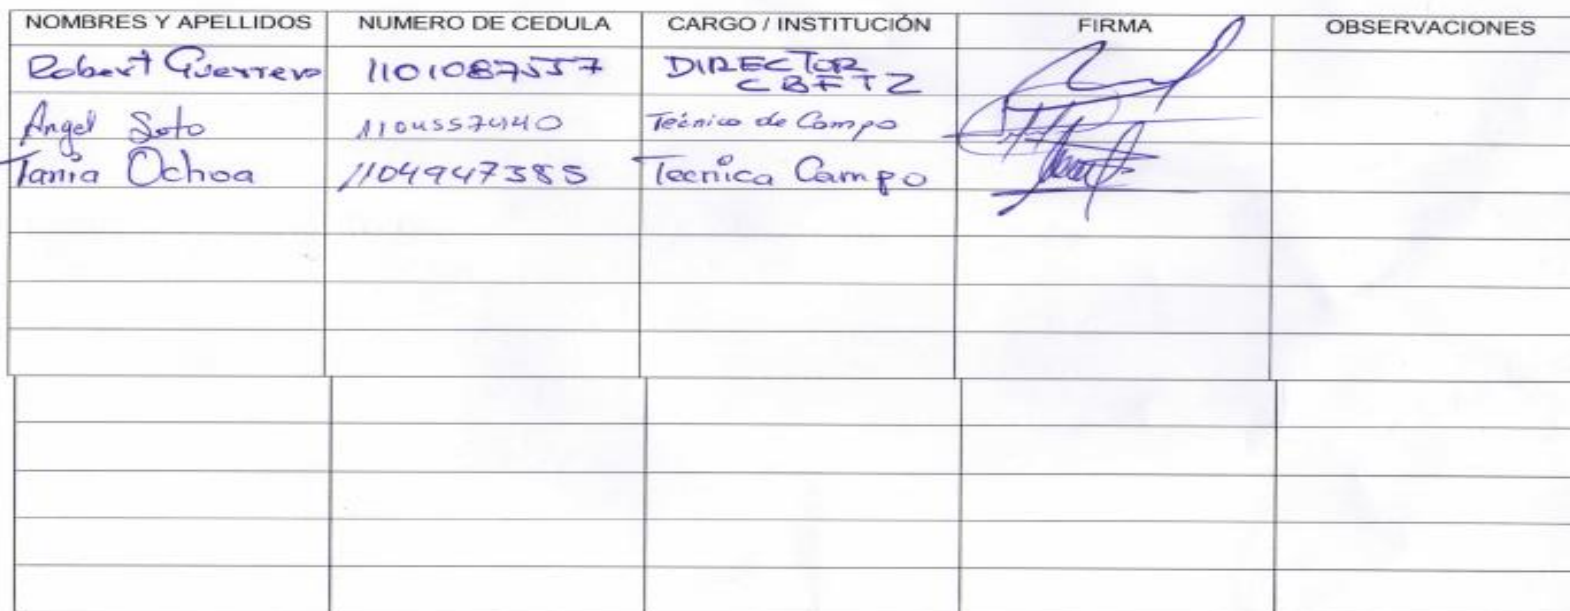 NOMBRES Y APELLIDOS NUMERO DE CEDULA CARGO / INSTITUCIÓN FIRMA OBSERVACIONES
Robert Guerrero 1101087557 DIRECTOR
CBFTZ
Angel Soto 1104557440 Técnico de Campo
Tania Ochoa 1104947385 Tecnica Campo